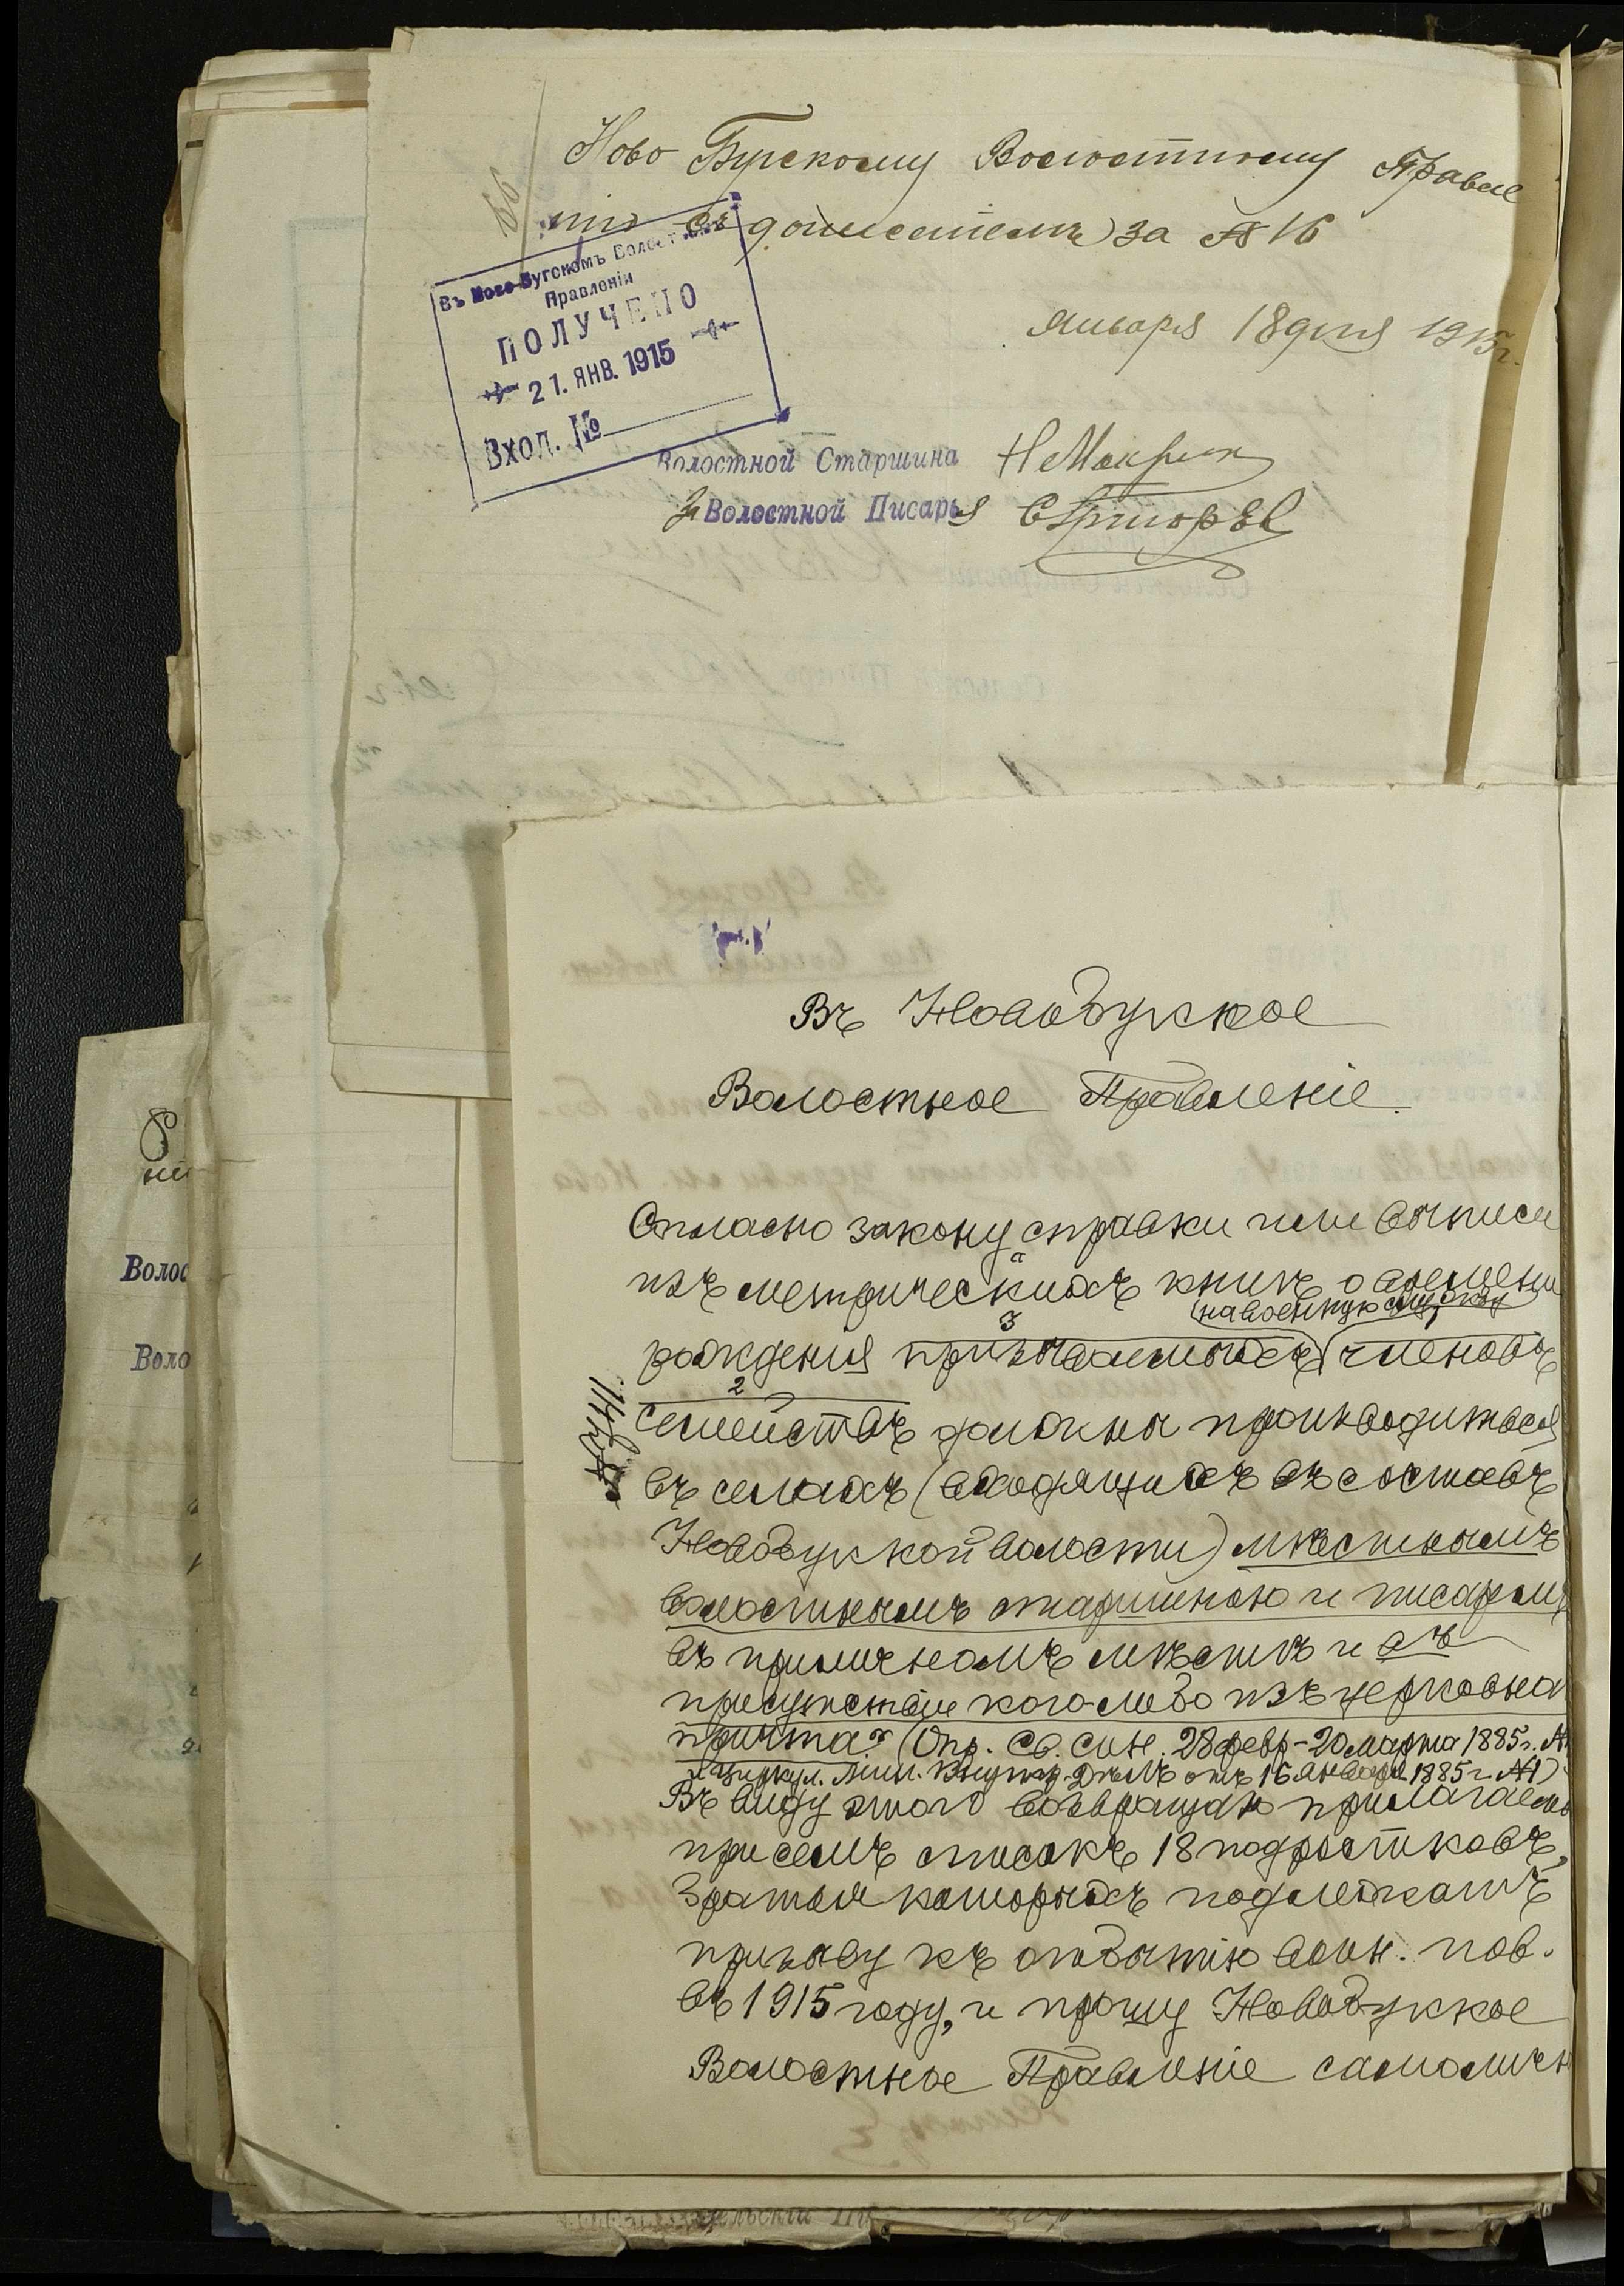 Ново Бугскому Волостному Правле
нію съ донесеніемъ за № 16
Въ Ново-Бугскомъ Волостномъ
Правленіи
ПОЛУЧЕНО
21. ЯНВ. 1915
Вход. №
Января 18 дня 1915 г.
Волостной Старшина
Волостной Писарь
Въ Новобугское
Волостное Правленіе.
Согласно закону справки или выписи
изъ метрическихъ книгъ о времени
(на военную службу)
3
рожденія призываемыхъ членовъ
2
семействъ должны производиться
въ селахъ (входящихъ въ составъ
Новобугской волости) мѣстнымъ
волостнымъ старшиною и писаремъ
въ приличномъ мѣстѣ и въ
присутствіи кого-либо изъ церковнаго
причта. (Опр. Св. Син. 28 февр.-20 марта 1885 г. №
и Циркул. Мин. Внутр. Дѣлъ отъ 16 января 1885 г. №1)
Въ виду этого возвращаю прилагаемый
при семъ списокъ 18 подростковъ,
братья которыхъ подлежатъ
призыву къ отбытію воин. пов.
въ 1915 году, и прошу Новобугское
Волостное Правленіе самоличн
Волос
Воло